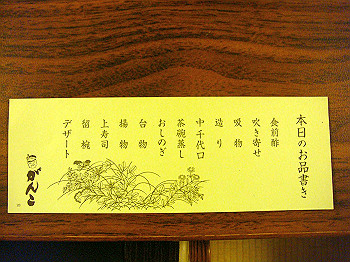 本日のお品書き
食前酢
吹き寄せ
吸物
造り
中千代口
茶碗蒸し
おしのぎ
台物
揚物
上寿司
留椀
デザート
がんこ